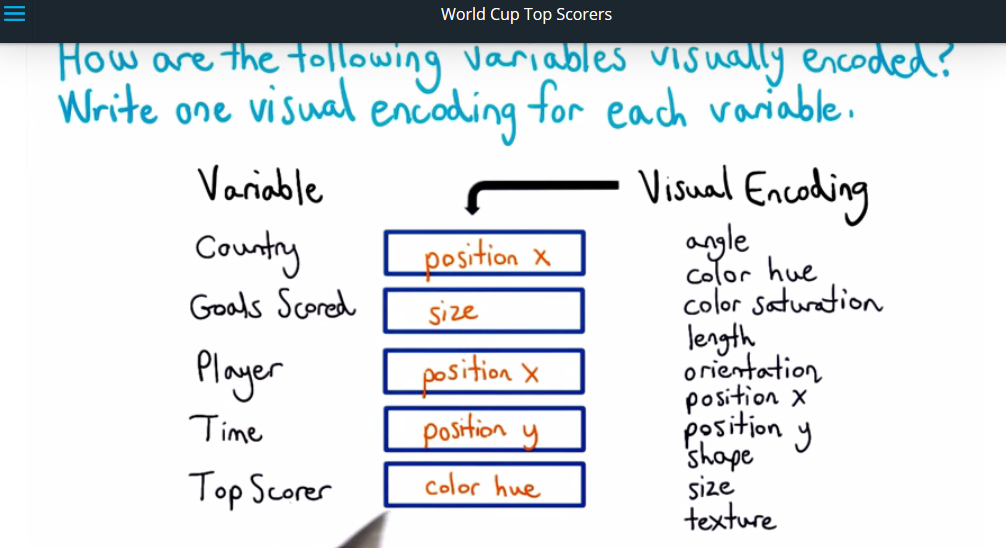 World Cup Top Scorers
How are the following variables visually encoded?
Write one visual encoding for each variable.
Variable
Visual Encoding
Country
position x
Goals Scored
size
Player
position x
Time
position y
Top Scorer
color hue
angle
color hue
color saturation
length
orientation
position x
position y
shape
size
texture